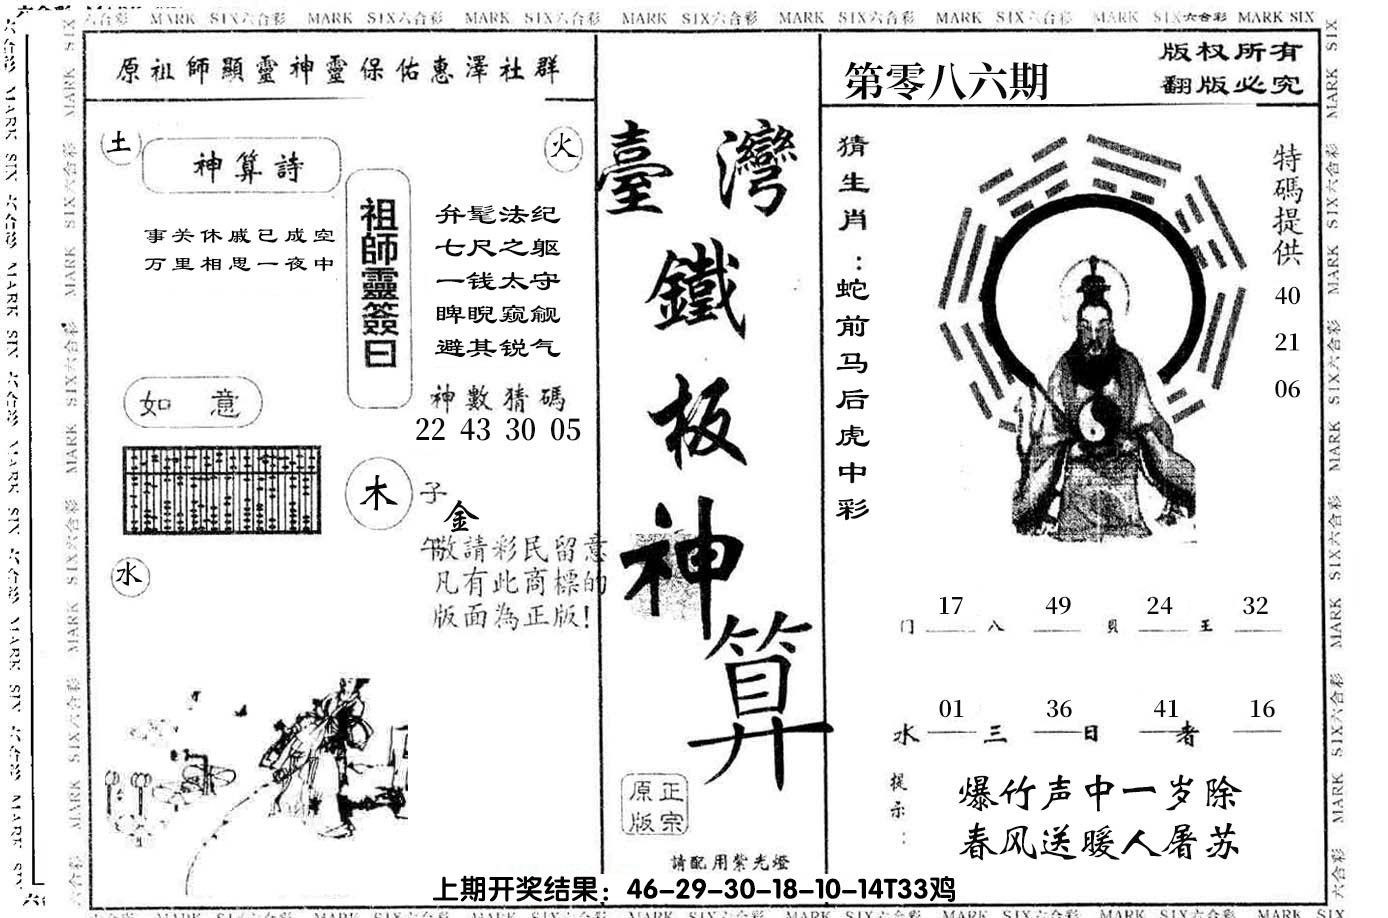 MARK SIX六合彩 MARK SIX六合彩 MARK SIX六合彩 MARK SIX六合彩 MARK SIX六合彩 MARK SIX六合彩 MARK SIX六合彩 MARK SIX
原祖師顯靈神靈保佑惠澤社群
土
火
神算詩
事关休戚已成空
万里相思一夜中
祖師靈簽曰
弁髦法纪
七尺之躯
一钱太守
睥睨窥觎
避其锐气
如 意
神數猜碼
22 43 30 05
木
子
金
午
水
敬請彩民留意
凡有此商標的
版面為正版!
臺灣
鐵
板
神
算
正宗
原版
請配用紫光燈
第零八六期
版权所有
翻版必究
猜生肖:蛇前马后虎中彩
特碼提供
40
21
06
17 49 24 32
门 八 貝 王
01 36 41 16
水 三 日 者
提示:
爆竹声中一岁除
春风送暖人屠苏
上期开奖结果：46-29-30-18-10-14T33鸡